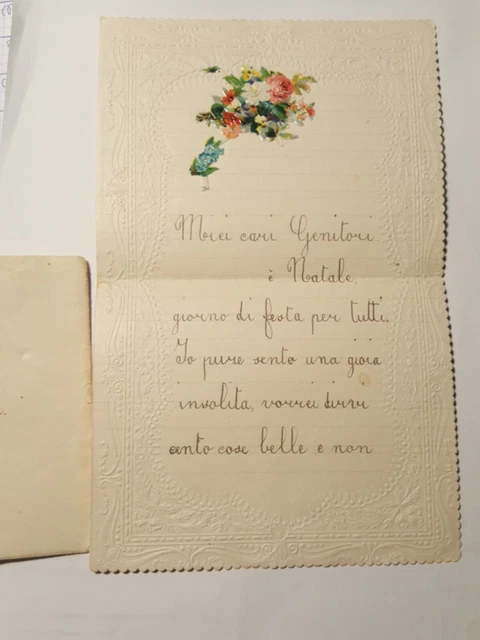 Miei cari Genitori
è Natale,
giorno di festa per tutti.
Io pure sento una gioia
insolita, vorrei dirvi
cento cose belle e non